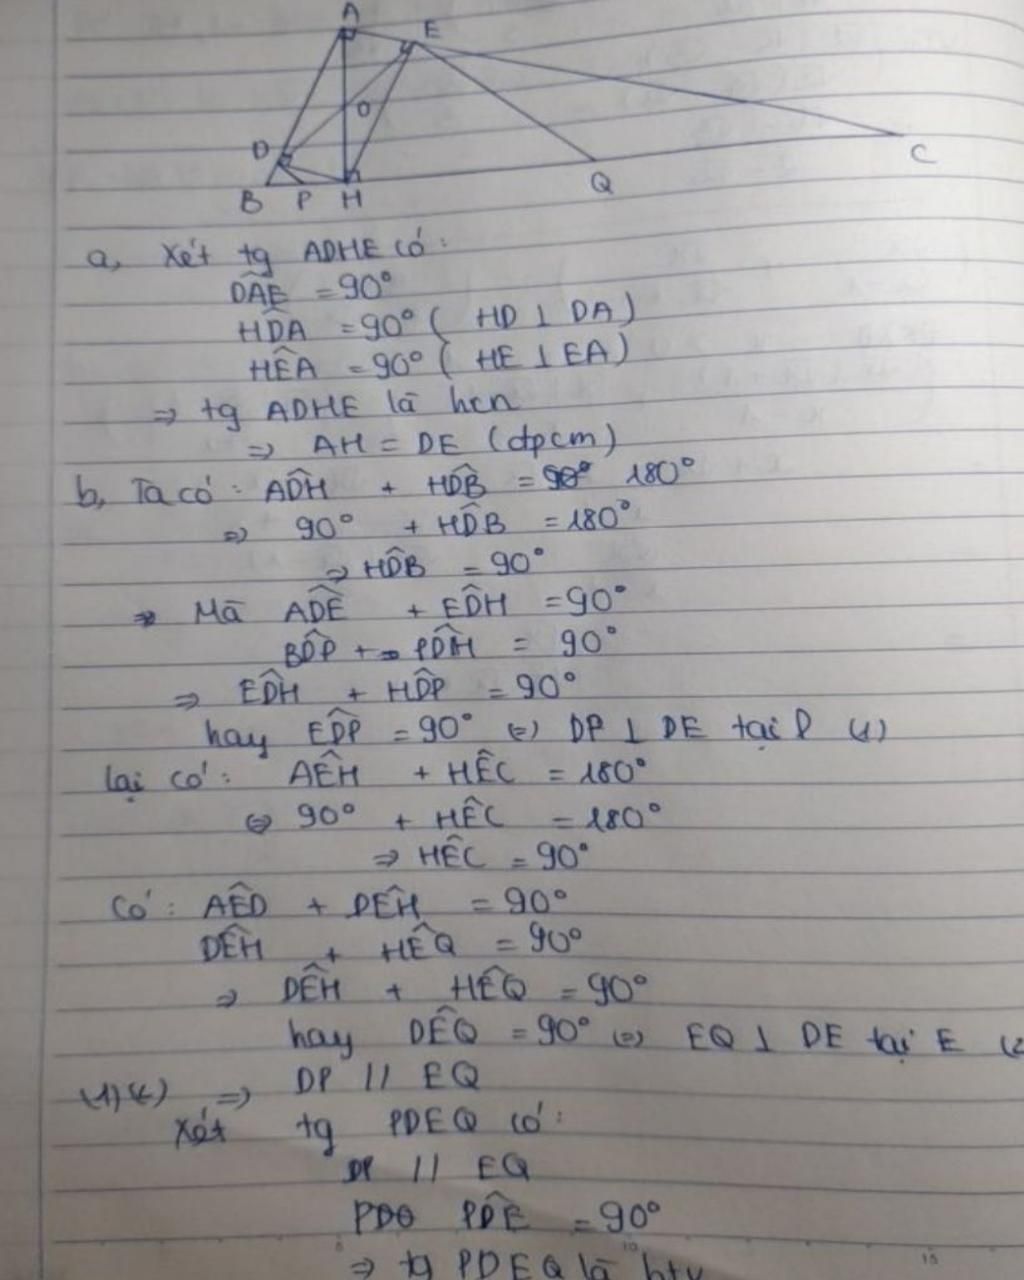 A
E
O
D
B P H
Q
C
a, Xét tg ADHE có:
DÂE = 90°
HD̂A = 90° ( HD ⊥ DA )
HÊA = 90° ( HE ⊥ EA )
⇒ tg ADHE là hcn
⇒ AH = DE (đpcm)
b, Ta có: AD̂H + HD̂B = 180°
⇒ 90° + HD̂B = 180°
⇒ HD̂B = 90°
Mà AD̂E + ED̂H = 90°
BD̂P + PD̂H = 90°
⇒ ED̂H + HD̂P = 90°
hay ED̂P = 90° (=) DP ⊥ DE tại D (1)
lại có: AÊH + HÊC = 180°
⇔ 90° + HÊC = 180°
⇒ HÊC = 90°
Có: AÊD + DÊH = 90°
DÊH + HÊQ = 90°
⇒ DÊH + HÊQ = 90°
hay DÊQ = 90° (=) EQ ⊥ DE tại E (2
(1)(2) ⇒ DP // EQ
Xét tg PDEQ có:
DP // EQ
PD̂E = 90°
⇒ tg PDEQ là htv